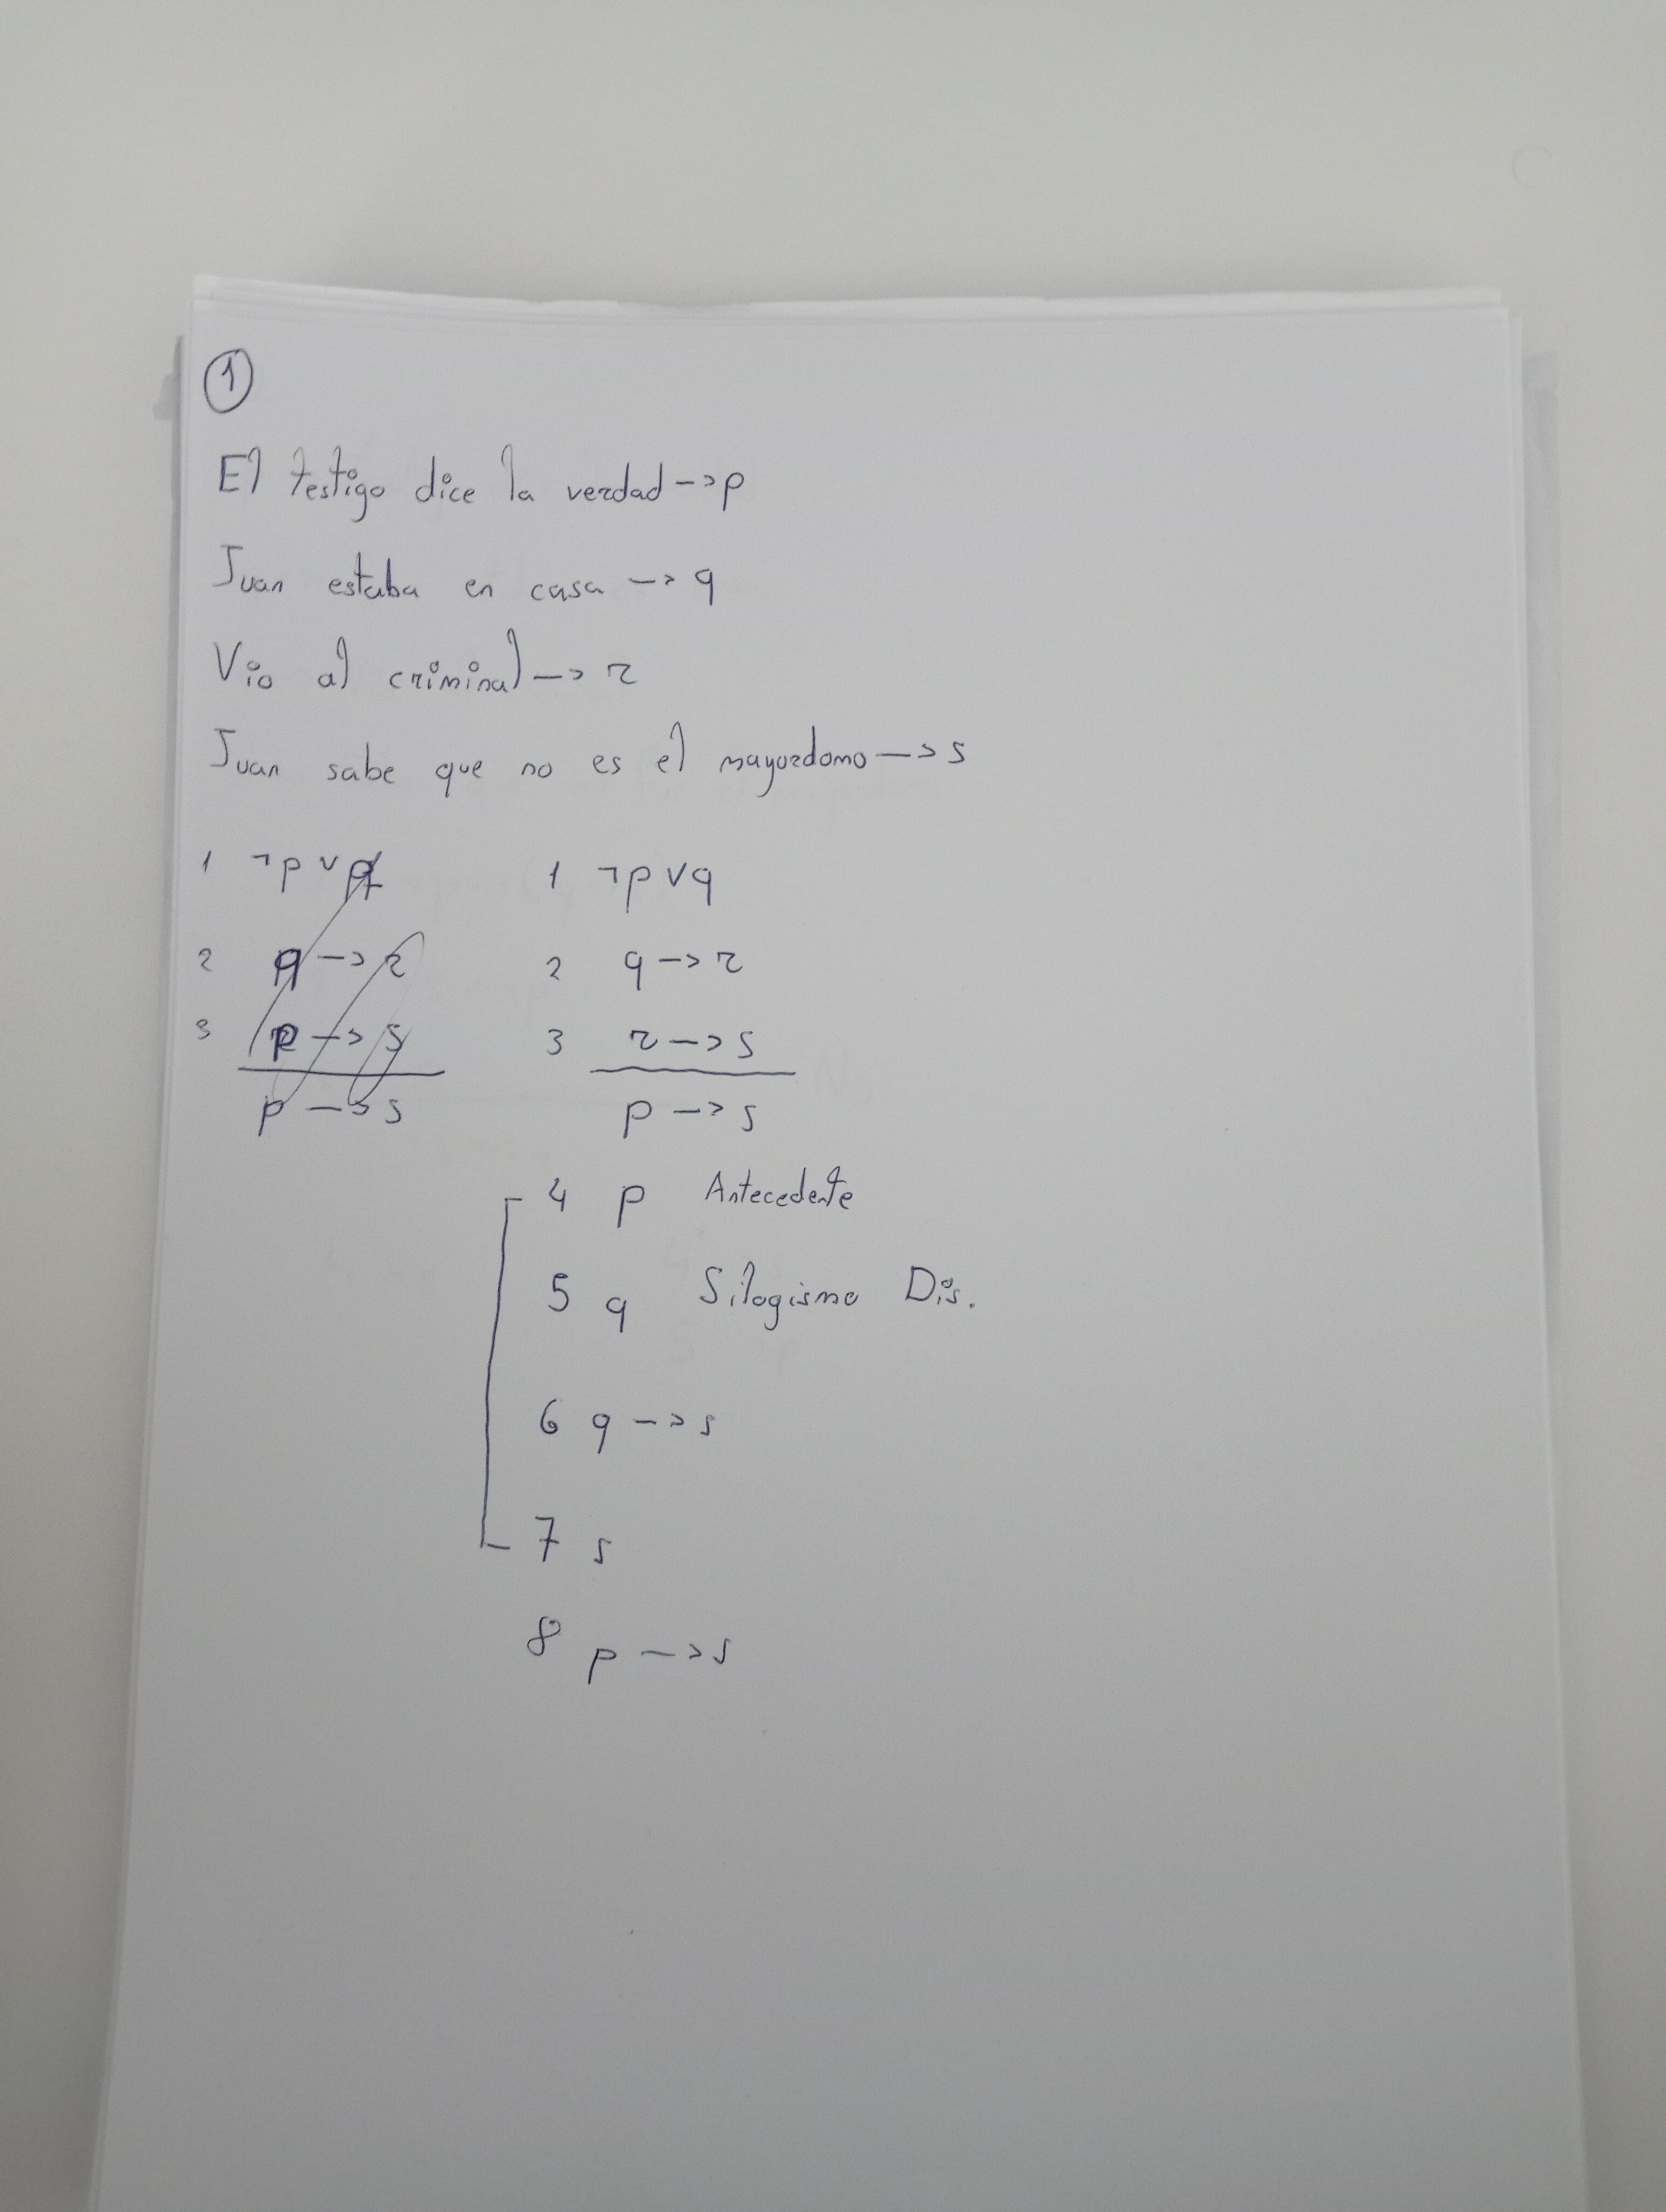 1
El testigo dice la verdad -> p
Juan estaba en casa -> q
Vio al criminal -> r
Juan sabe que no es el mayordomo -> s
1 ¬p v q
2 q -> r
3 r -> s
p -> s
1 ¬p v q
2 q -> r
3 r -> s
p -> s
4 p Antecedente
5 q Silogismo Dis.
6 q -> s
7 s
8 p -> s